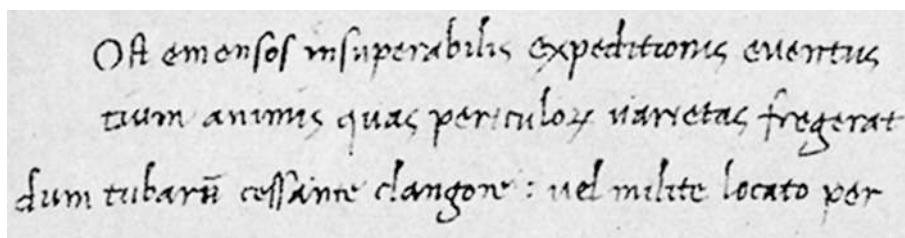 Ost emensos insuperabilis expeditionis euentus
tium animis quas periculoꝝ uarietas fregerat
dum tubarū cessante clangore : uel milite locato per